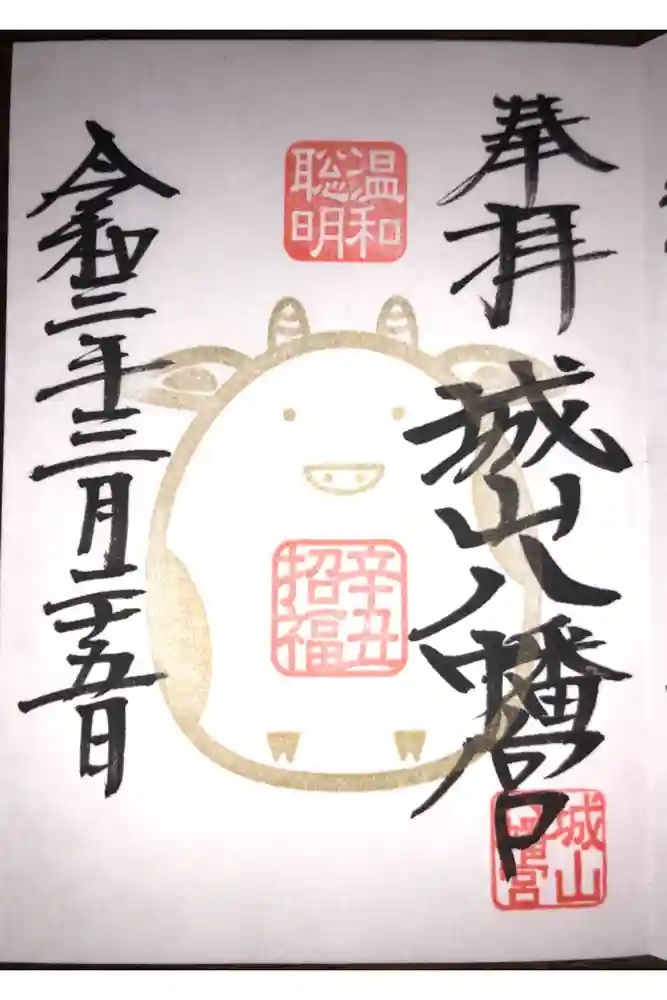 奉拝
城山八幡宮
城山八幡宮
温和
聡明
辛丑
招福
令和三年三月二十五日